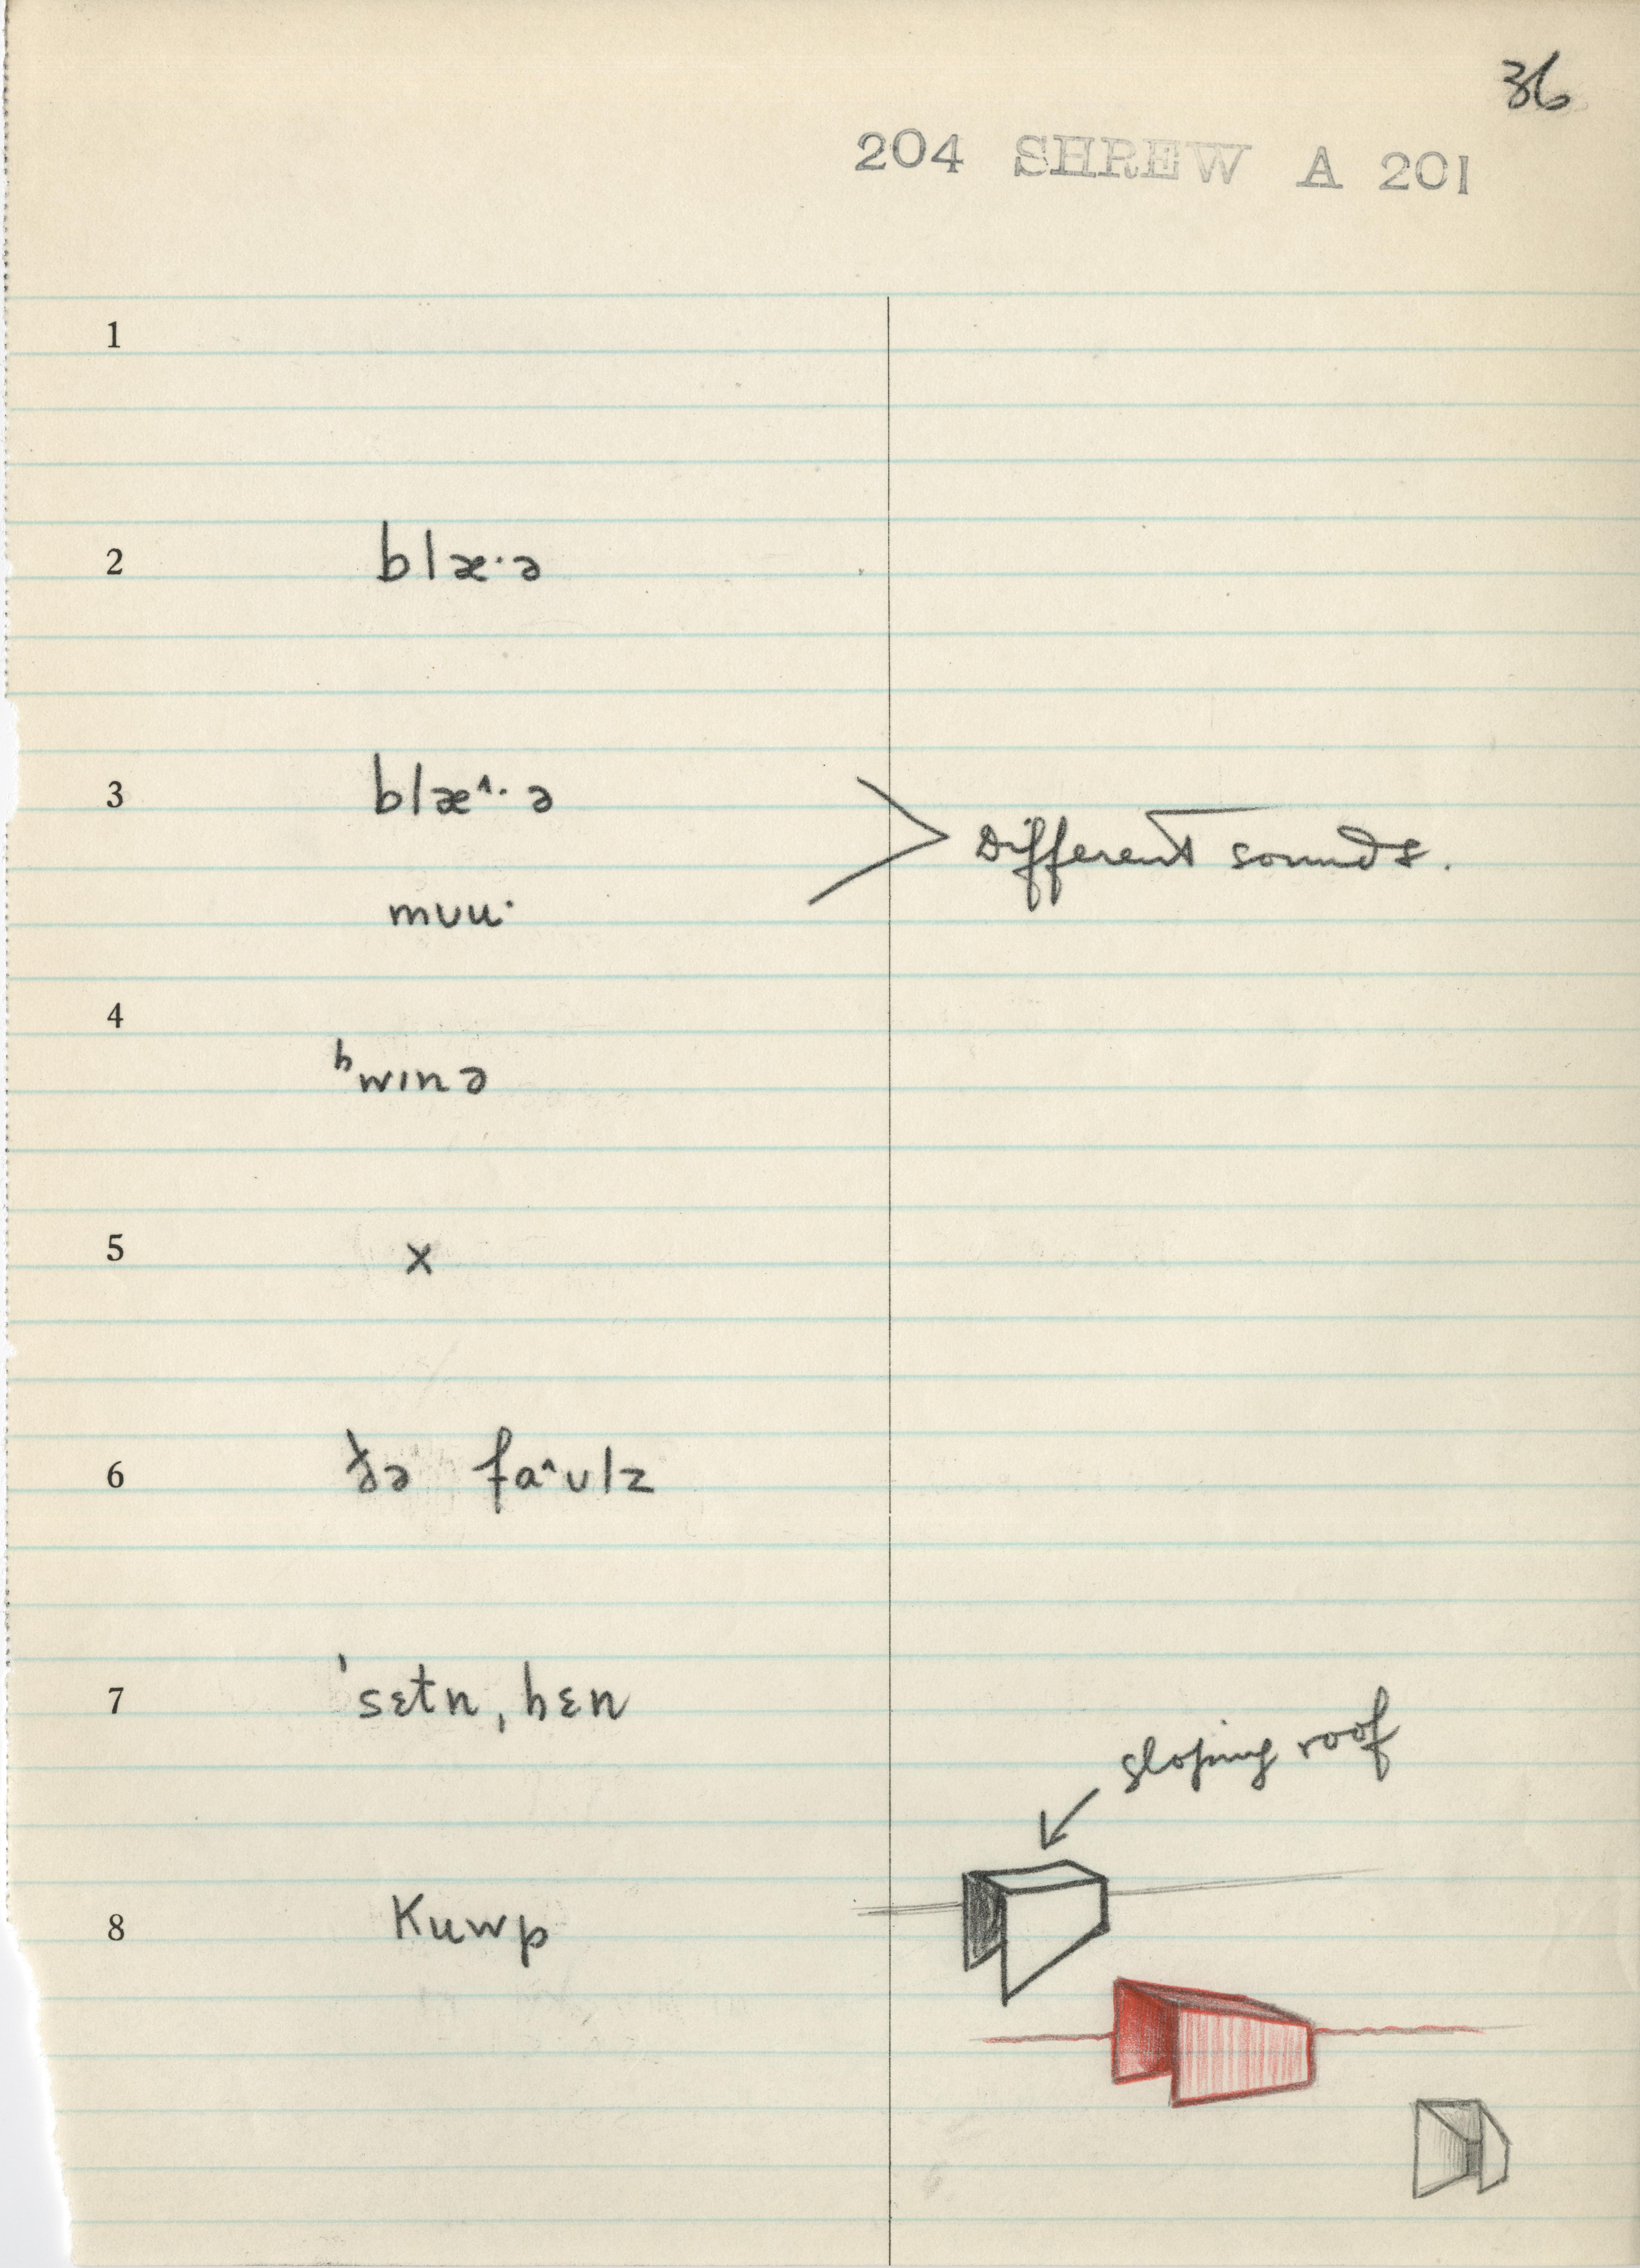 36
204 SHREW A 201
1
2 blæ·ə
3 blæ^·ə
Different sounds.
mʊu·
4
ʰwɪnə
5 x
6 ðə fa^ʊlz
7 ˈsɛtnˌhɛn
sloping roof
8 Kuwp